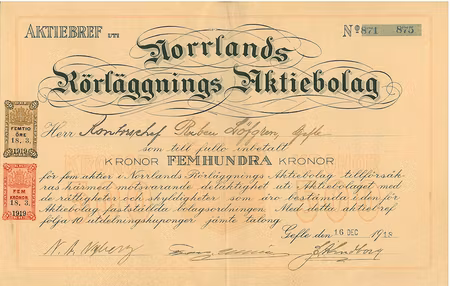 AKTIEBREF UTI
Nº 871 875
Norrlands
Rörläggnings Aktiebolag
Herr Kontorschef Ruben Löfgren, Gefle
som till fullo inbetalt
KRONOR FEMHUNDRA KRONOR
för fem aktier i Norrlands Rörläggnings Aktiebolag tillförsäk-
ras härmed motsvarande delaktighet uti Aktiebolaget med
de rättigheter och skyldigheter som äro bestämda i den för
Aktiebolag fastställda bolagsordningen. Med detta aktiebref
följa 10 utdelningskuponger jämte talong.
Gefle den 16 DEC 1918
N. A. Nyberg
FEMTIO
ÖRE
18. 3.
1919
FEM
KRONOR
18. 3.
1919